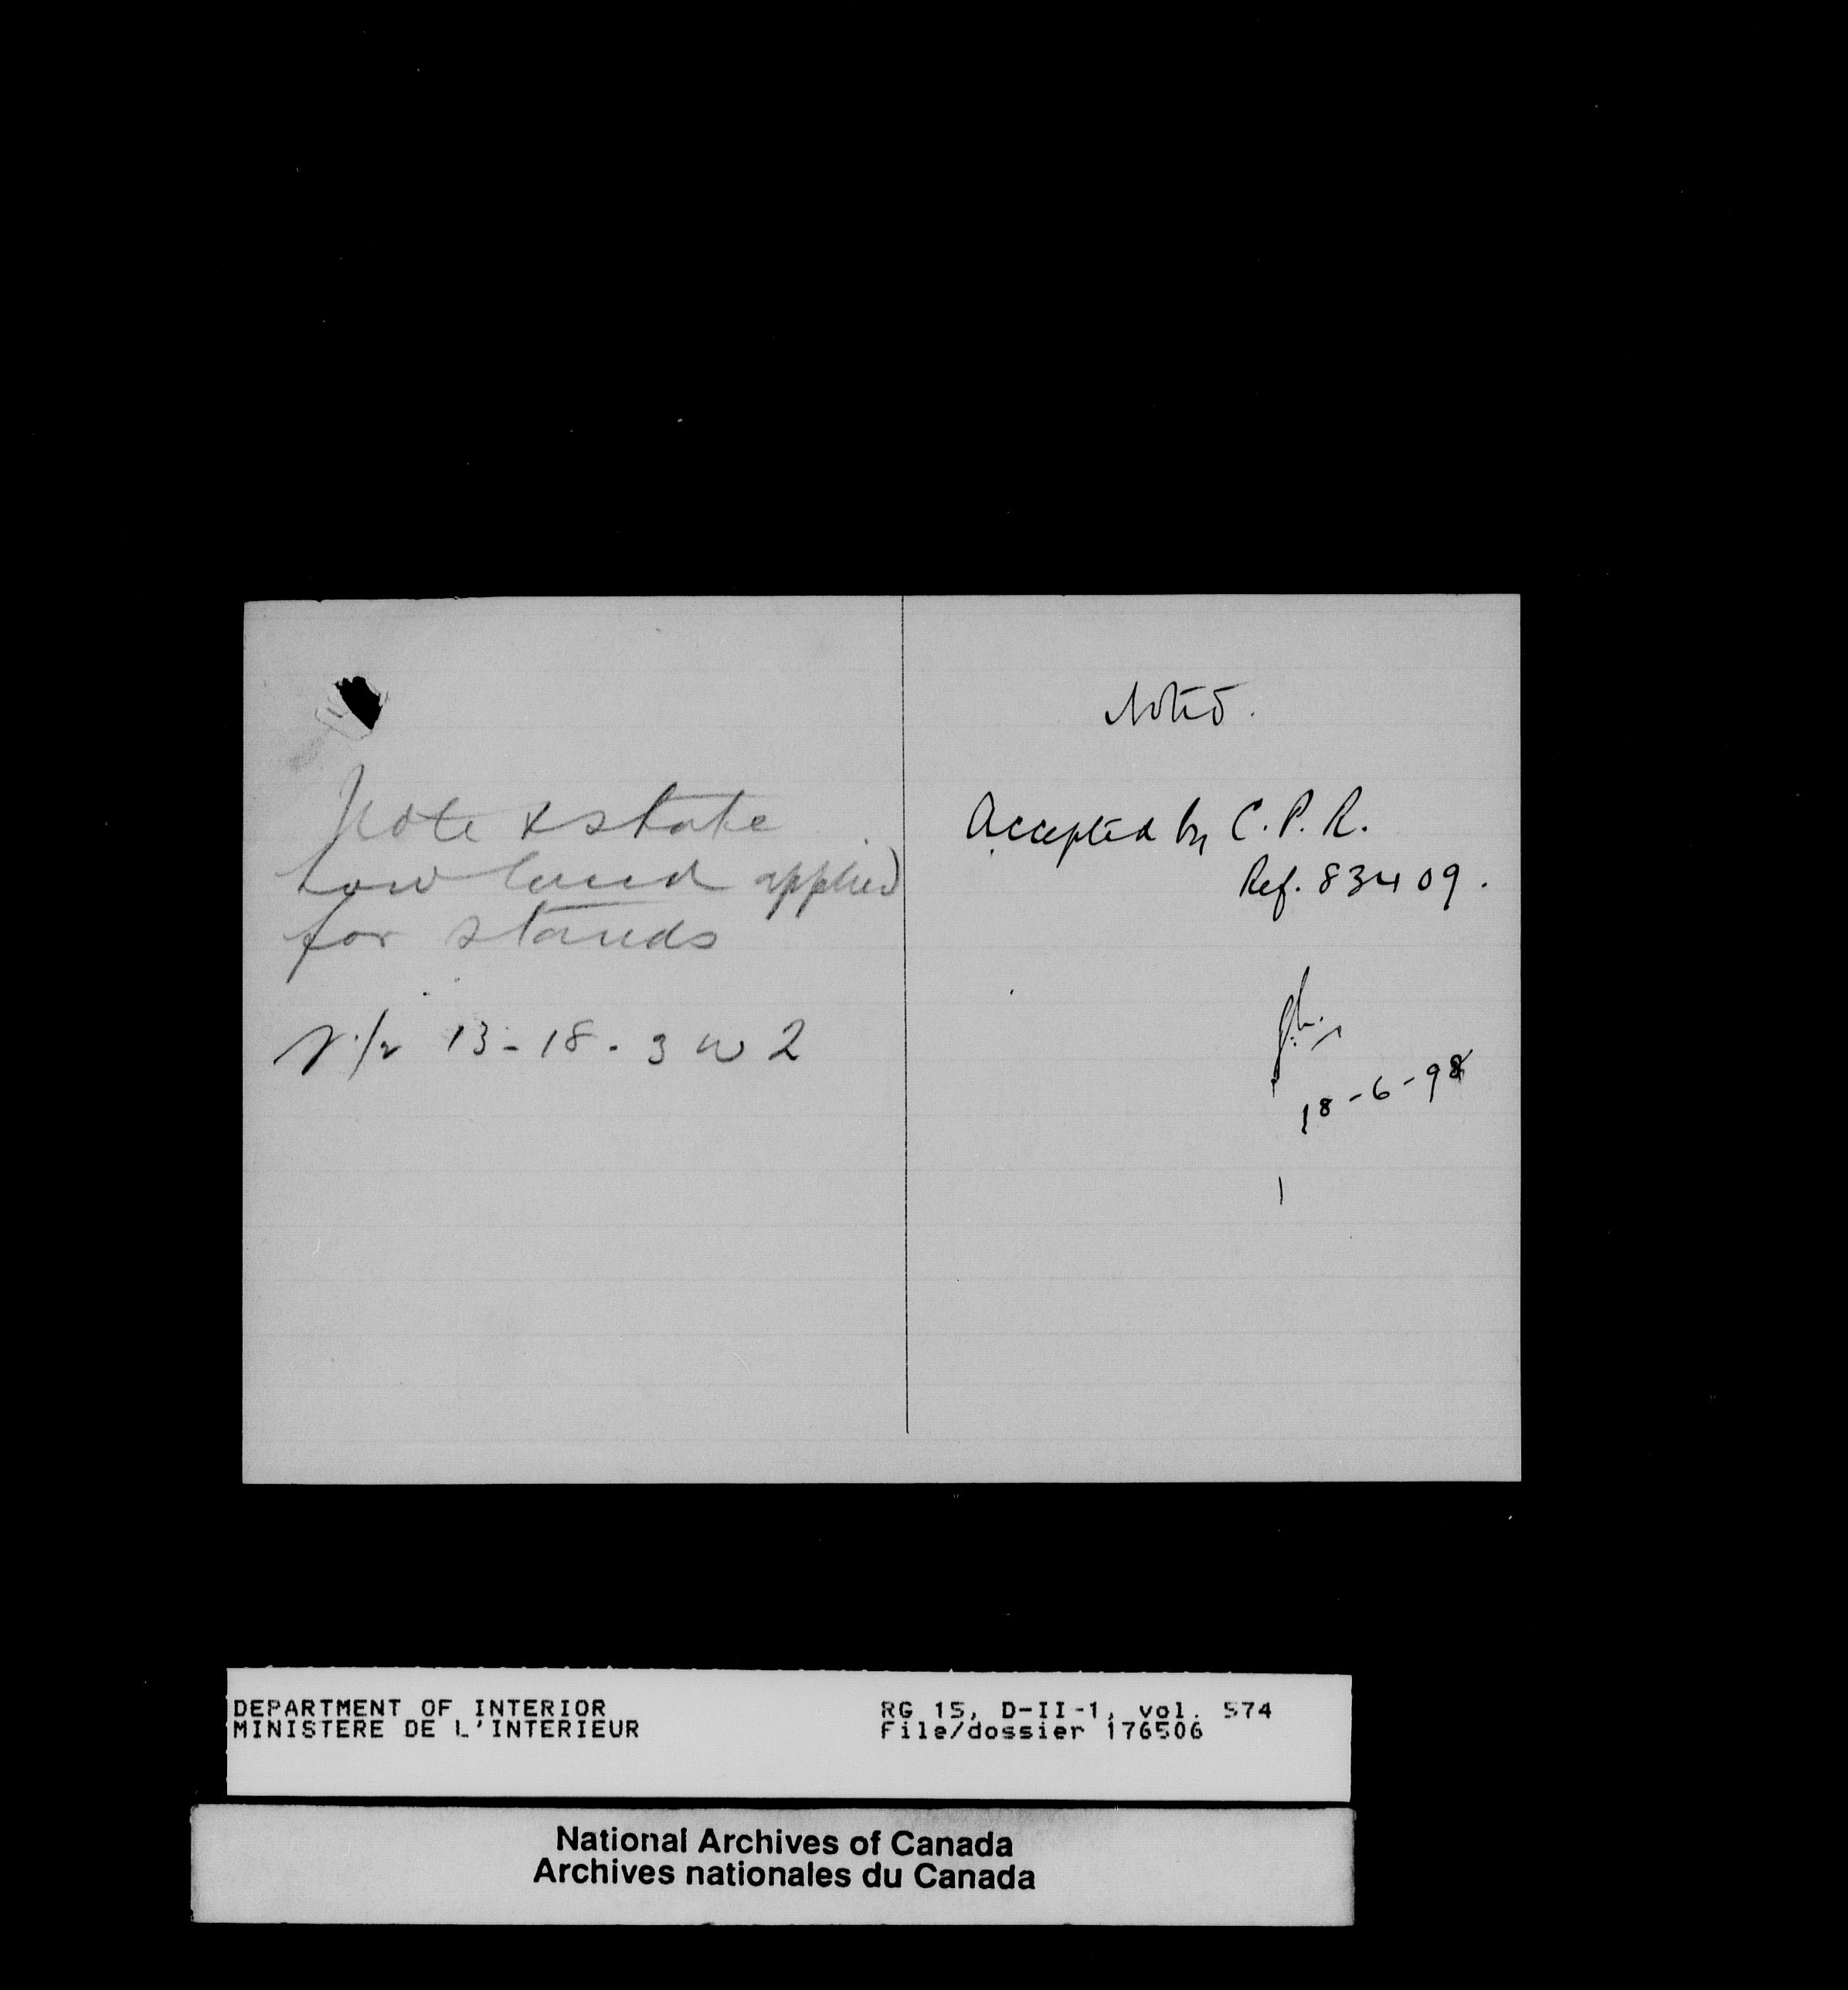 Note & state
how land applied
for stands
N ½ 13 - 18 - 3 W 2
Noted.
Accepted by C. P. R.
Ref. 83409.
18-6-98
DEPARTMENT OF INTERIOR
MINISTERE DE L'INTERIEUR
RG 15, D-II-1, vol. 574
File/dossier 176506
National Archives of Canada
Archives nationales du Canada